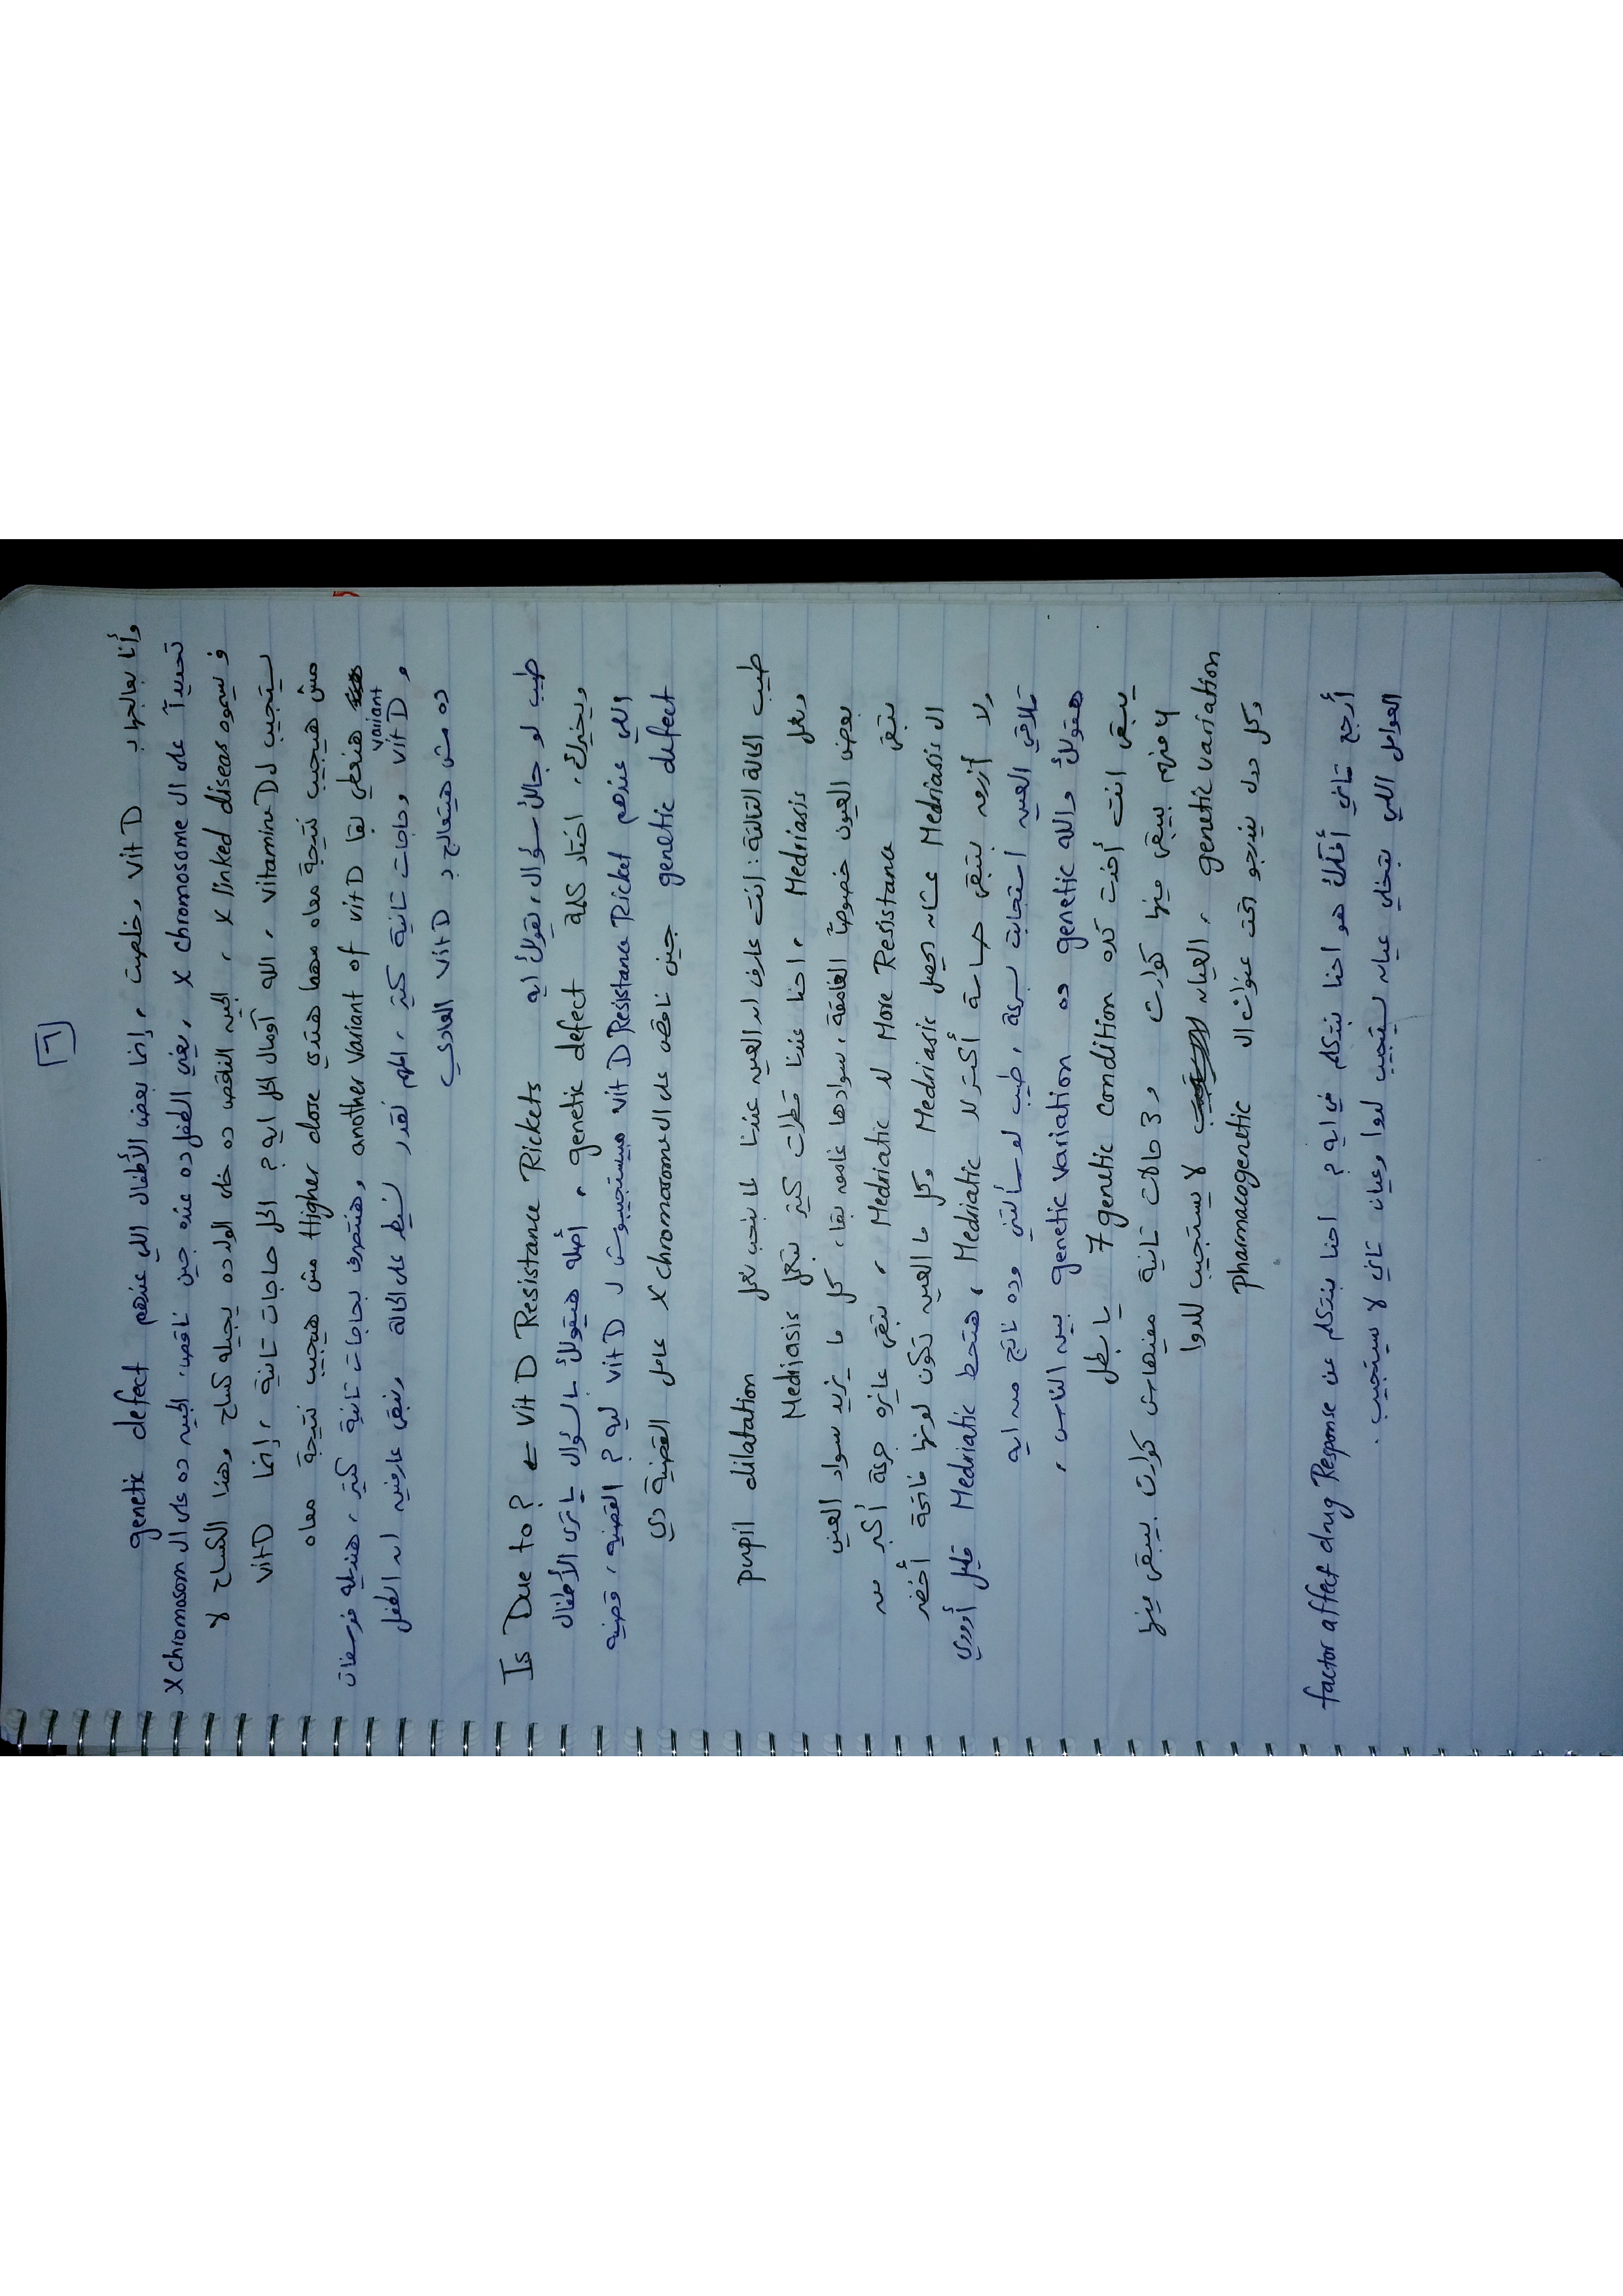 [٦]
وأنا بعالجها بـ vit D وخلصت، إنما بعض الأطفال اللي عندهم genetic defect
تحديداً على ال X chromosome، يعني الطفل ده عنده جين ناقص، الجين ده على ال X chromosom
فـ بيسموه X linked disease، الجين الناقص ده خلى الولد ده يجيله كساح وهذا الكساح لا
يستجيب لـ vitamin D، الله أومال الحل ايه؟ الحل حاجات تانية، إنما vit D
مش هيجيب نتيجة معاه مهما هتدي Higher dose مش هيجيب نتيجة معاه
هنعطي بقا another Variant of vit D وهنتصرف بحاجات تانية كتير، هنديله فوسفات
و vit D variant وحاجات تانية كتير، المهم نقدر نسيطر على الحالة ونبقى عارفين ان الطفل
ده مش هيتعالج بـ vit D العادي
طيب لو جالك سؤال، بقولك ايه Is Due to? ← vit D Resistance Rickets
ويخيرك، اختار كلمة genetic defect، أصله هيقولك بالسؤال يا ترى الأطفال
اللي عندهم vit D Resistance Ricket مبيستجيبوش لـ vit D ليه؟ القضية، قضية
genetic defect جين ناقص على ال X chromosome عامل القضية دي
طيب الحالة التالتة: انت عارف ان العين عندنا لما بنحب نعمل pupil dilatation
ونعمل Medriasis، احنا عندنا قطرات كتير بتعمل Medriasis
بعض العيون خصوصاً الغامقة، سوادها غامق بقا، كل ما يزيد سواد العين
بتبقى More Resistance لل Medriatic، بتبقى عايزه جرعة أكبر من
ال Medriasis عشان يحصل Medriasis وكل ما العين تكون لونها فاتحة أخضر
ولا أزرق بتبقى حساسة أكتر لل Medriatic، هتحط Medriatic قليل
تلاقي العين استجابت بسرعة، طيب لو سألتني وده ناتج من ايه
هقولك والله genetic ده genetic variation بين الناس،
يبقى انت أخدت كده 7 genetic condition يا بطل
4 منهم يبقى فيها كوارث و 3 حالات تانية مفيهاش كوارث يبقى فيها
genetic variation، العيان لا يستجيب للدوا
وكل دول يندرجو تحت عنوان ال pharmacogenetic
أرجع تاني أفكرك هو احنا بنتكلم في ايه؟ احنا بنتكلم عن factor affect drug Response
العوامل اللي بتخلي عيان يستجيب لدوا وعيان تاني لا يستجيب.